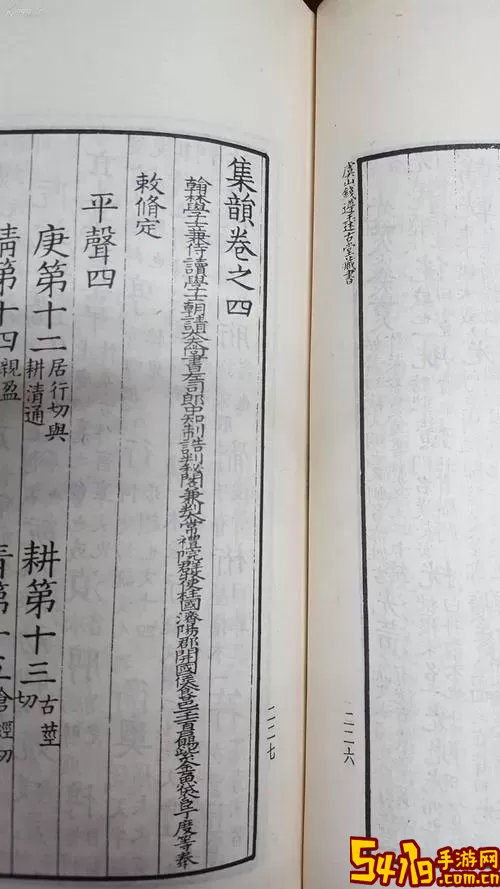 虞山錢遵王述古堂藏書
二二六
集韻卷之四
翰林學士兼侍讀學士朝請大夫尚書左司郎中知制誥判秘閣兼判太常禮院群牧使柱國濟陽郡開國侯食邑一千一百戶賜紫金魚袋臣丁度等奉
敕脩定
平聲四
庚第十二 居行切與耕清通 耕第十三 古莖切
清第十四 親盈 青第十五 倉經切
二二七
手游网